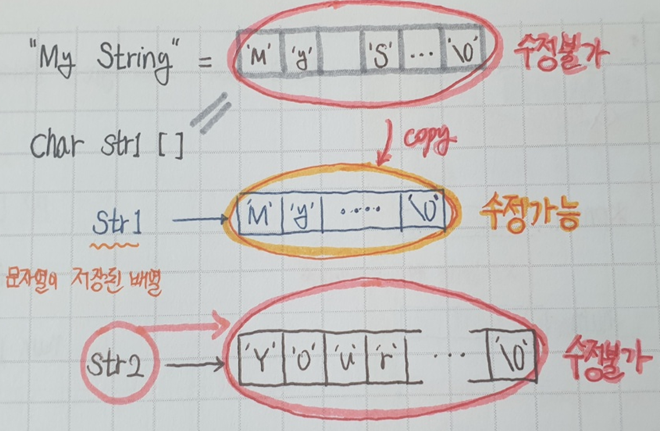 "My String" = 'M' 'y' 'S' ... '\0' 수정불가
char str1 []
copy
Str1 → 'M' 'y' ..... '\0' 수정가능
문자열이 저장된 배열
Str2 → 'Y' 'o' 'u' 'r' ... '\0' 수정불가